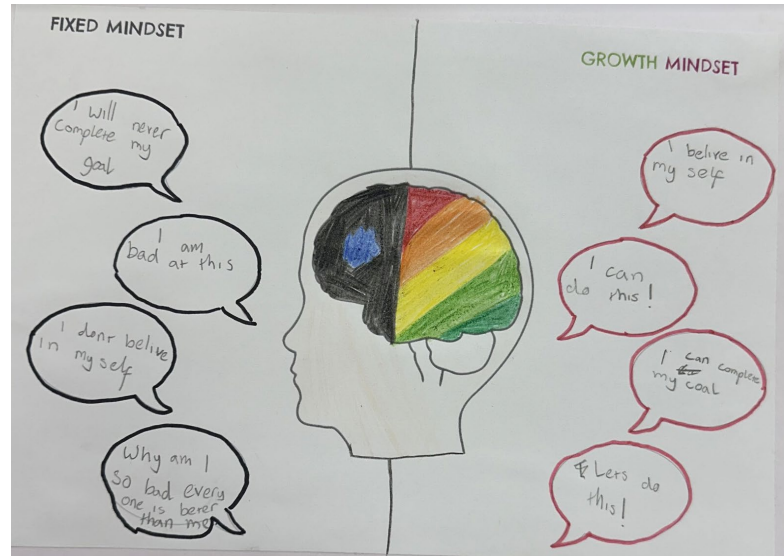 FIXED MINDSET
I will never
complete my
goal
I am
bad at this
I donr belive
in my self
Why am I
so bad every
one is berer
than me
GROWTH MINDSET
I belive in
my self
I can
do this!
I can complete
my coal
Lets do
this!